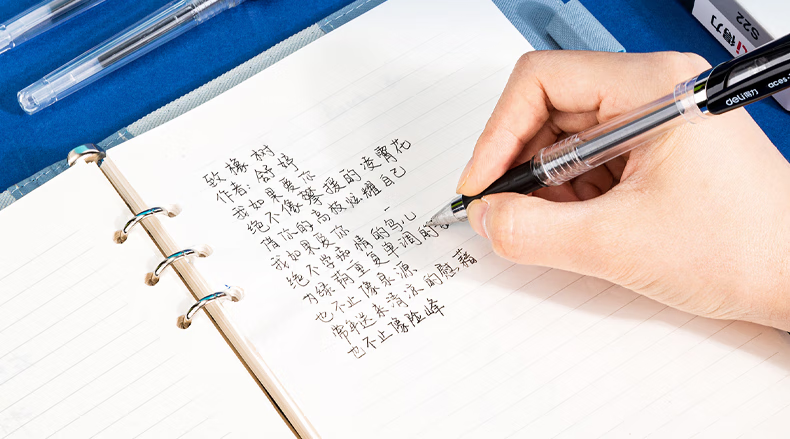 致橡树
作者:舒婷
我如果爱你
绝不像攀援的凌霄花
借你的高枝炫耀自己
我如果爱你
绝不学痴情的鸟儿
为绿荫重复单调的
也不止像泉源
常年送来清凉的慰藉
也不止像险峰
deli得力
aces
得力
S22